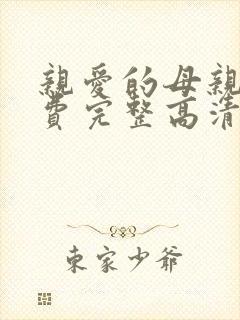 親愛的母親
費完整高清
東家少爺